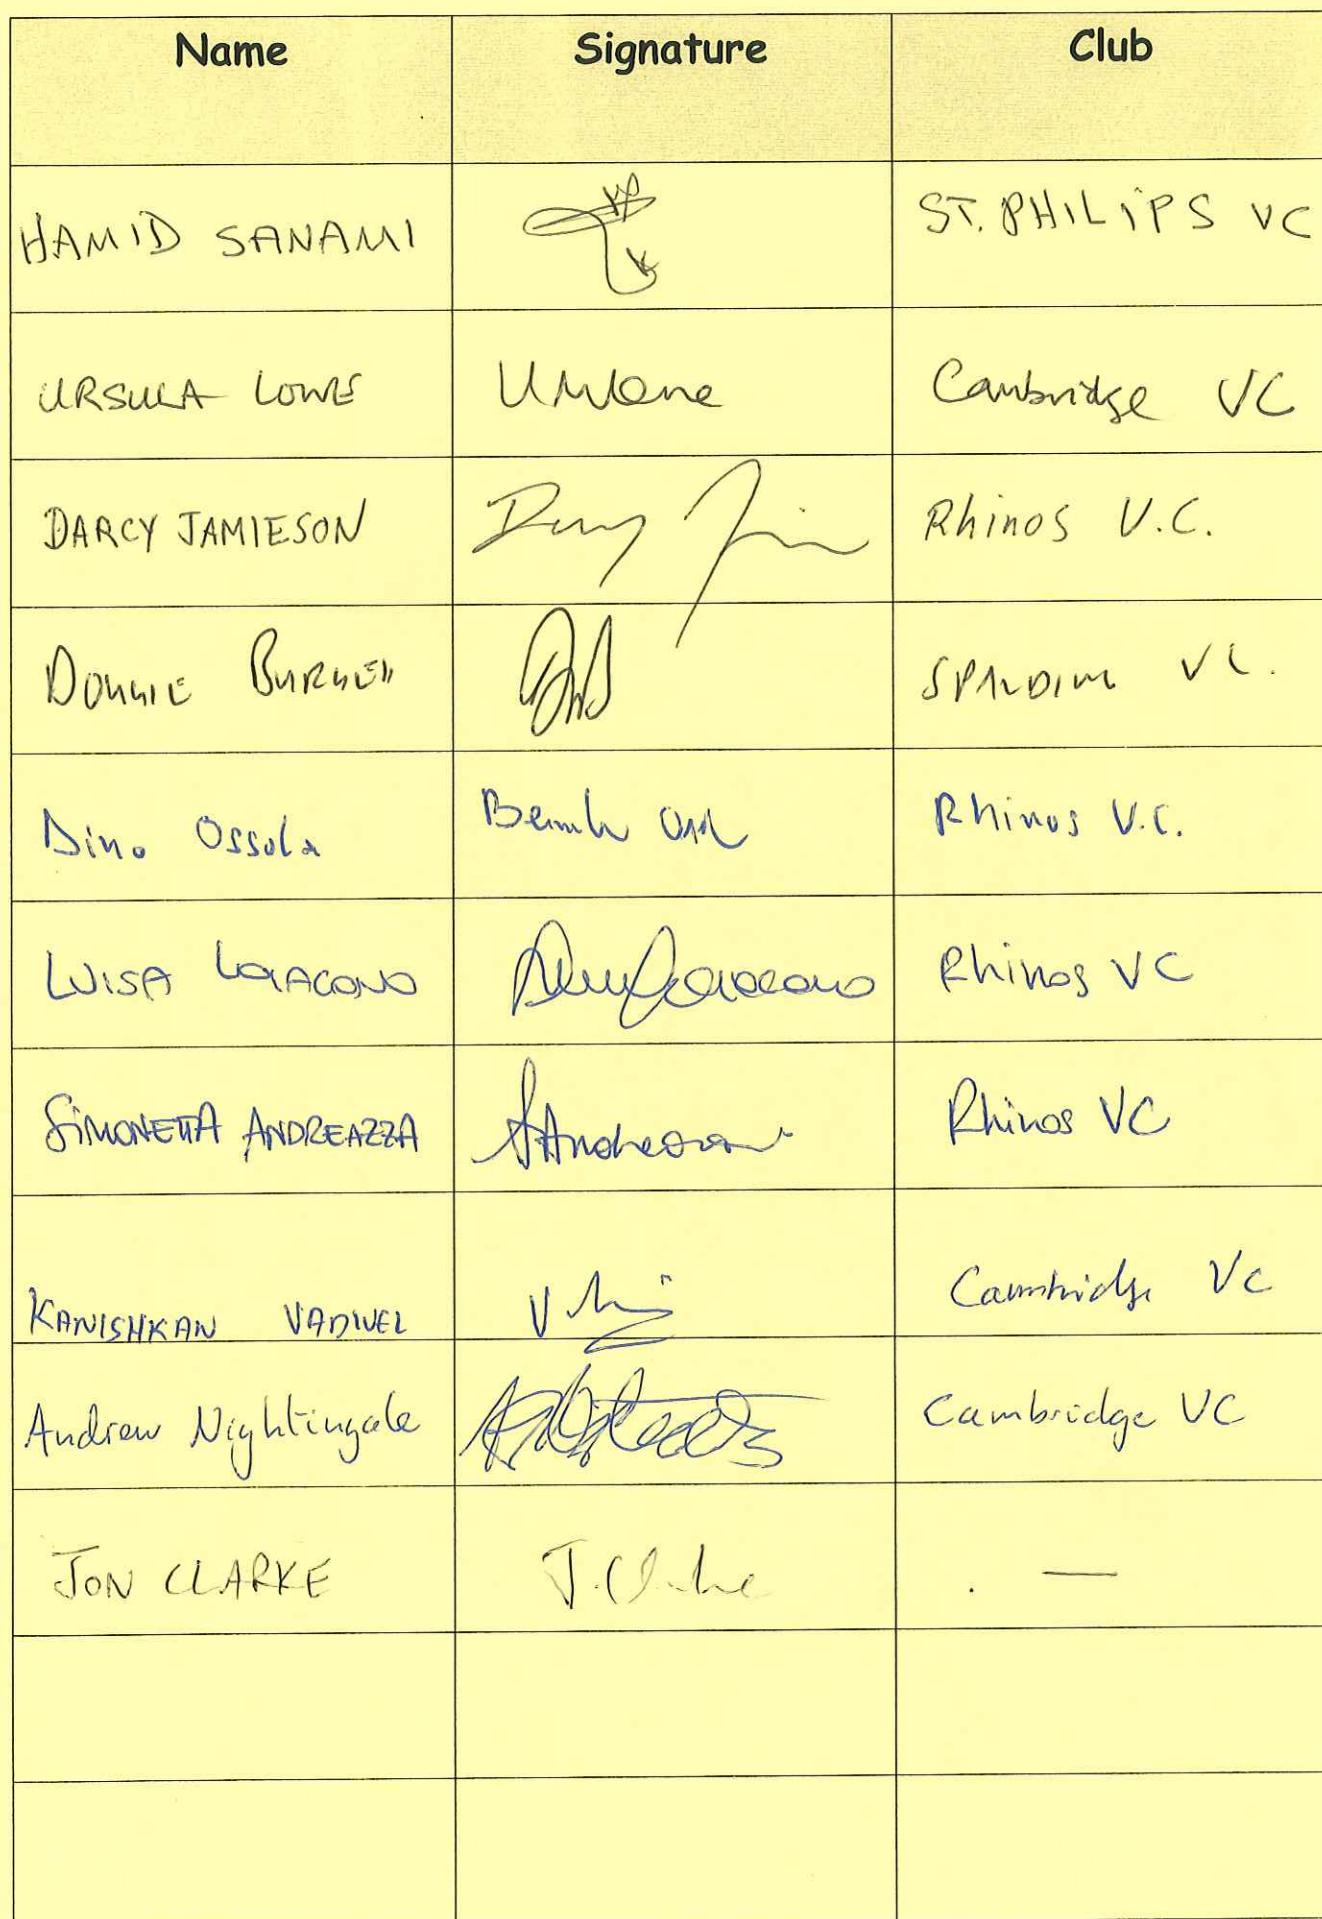 Name Signature Club
HAMID SANAMI ST. PHILIPS VC
URSULA LOWE Cambridge VC
DARCY JAMIESON Rhinos V.C.
DONNIE BURNETT SPALDING VC.
Dino Ossola Rhinos V.C.
LUISA LOIACONO Rhinos VC
SIMONETTA ANDREAZZA SAndreazza Rhinos VC
KANISHKAN VADIVEL Cambridge VC
Andrew Nightingale Cambridge VC
JON CLARKE J. Clarke —